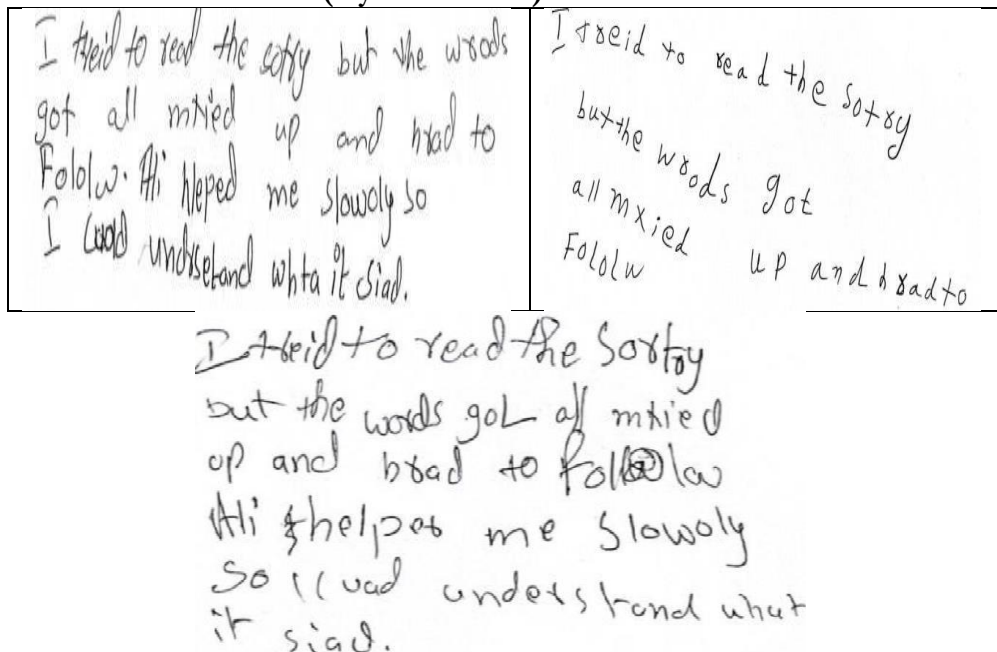 I treid to read the sotry but the wrods
got all mxied up and hrad to
Fololw. Ali hleped me slowoly so
I could undrsetand whta it siad.
I treid to read the Sotry
but the wrods got
all mxied up and hradto
Fololw
I treid to read the Sortry
but the words got all mxied
up and brad to follolw
Ali helpes me slowoly
So understand what
it siad.